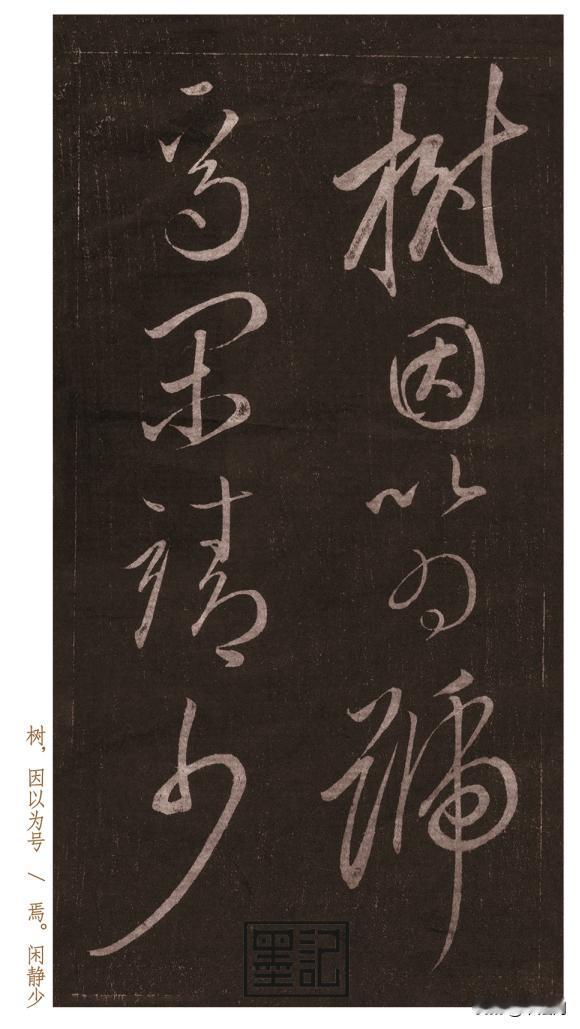 樹因以為號
焉閑靖少
树，因以为号 / 焉。闲静少
墨記